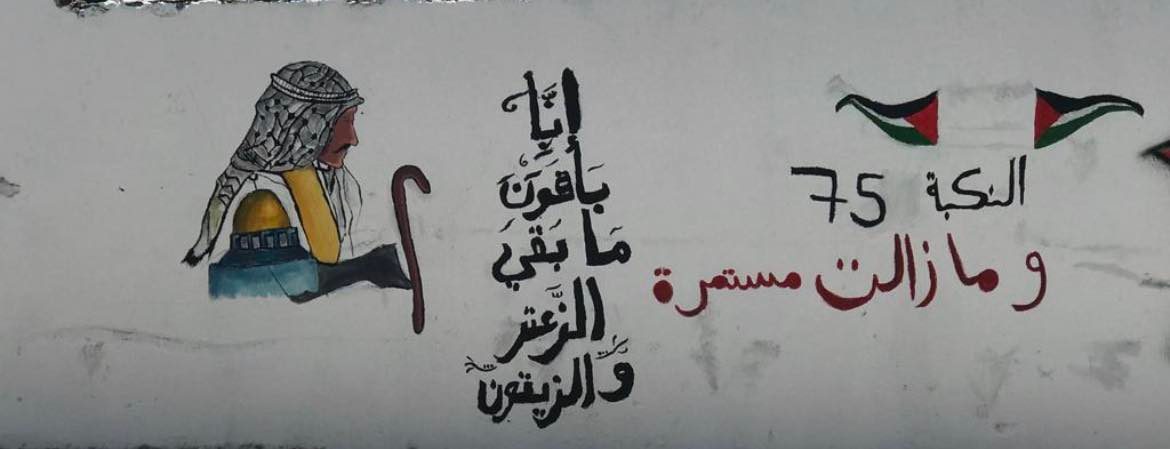 النكبة 75
وما زالت مستمرة
إنَّا
بَاقُونَ
مَا بَقَيَ
الزَّعتر
وَالزيتون